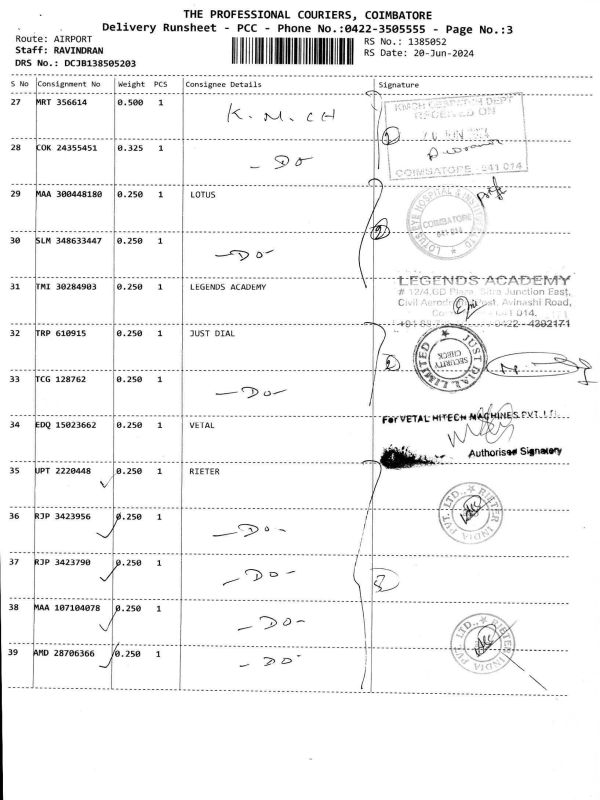 THE PROFESSIONAL COURIERS, COIMBATORE
Delivery Runsheet - PCC - Phone No.:0422-3505555 - Page No.:3
Route: AIRPORT
RS No.: 1385052
Staff: RAVINDRAN
RS Date: 20-Jun-2024
DRS No.: DCJB138505203
S No Consignment No Weight PCS Consignee Details Signature
27 MRT 356614 0.500 1 K.M.CH
KMCH DESPATCH DEPT
RECEIVED ON
COIMBATORE - 641 014
28 COK 24355451 0.325 1 - DO
29 MAA 300448180 0.250 1 LOTUS
LOTUS EYE HOSPITAL & INSTITUTE LTD
COIMBATORE
641 014
30 SLM 348633447 0.250 1 -DO-
31 TMI 30284903 0.250 1 LEGENDS ACADEMY
LEGENDS ACADEMY
# 12/4,GD Plaza, Sitra Junction East,
Civil Aerodrome Post, Avinashi Road,
641 014.
0422 - 4302171
32 TRP 610915 0.250 1 JUST DIAL
JUST DIAL LIMITED
SECURITY
CHECK
33 TCG 128762 0.250 1 -DO-
34 EDQ 15023662 0.250 1 VETAL
For VETAL HITECH MACHINES PVT. LTD.
Authorised Signatory
35 UPT 2220448 0.250 1 RIETER
RIETER INDIA PVT. LTD.
36 RJP 3423956 0.250 1 -DO-
37 RJP 3423790 0.250 1 -DO-
38 MAA 107104078 0.250 1 -DO-
RIETER INDIA PVT. LTD.
39 AMD 28706366 0.250 1 -DO-